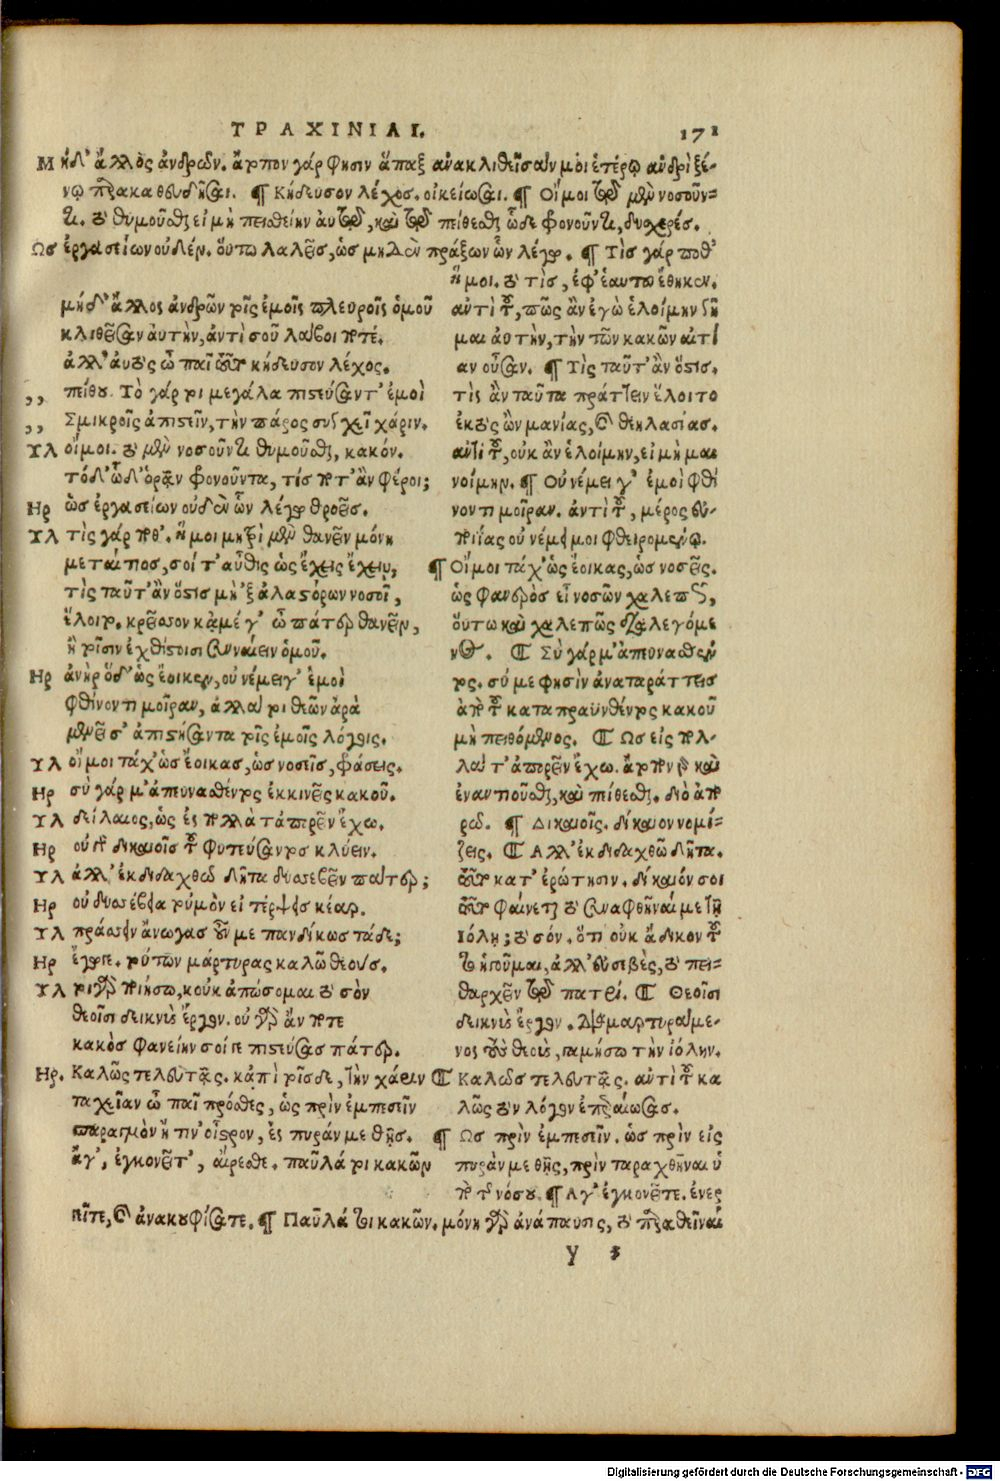 ΤΡΑΧΙΝΙΑΙ. 171
Μηδ' ἄλλος ἀνδρῶν. ἄτοπον γάρ φησιν ἅπαξ ἀνακλιθεῖσάν μοι ἑτέρῳ ἀνδρὶ ξέ-
νῳ παρακαθευδῆσαι. ¶ Κήδευσον λέχος. οἰκείωσαι. ¶ Οἴμοι τὸ μὲν νοσοῦν-
τι. τὸ θυμοῦσθαι εἰμὴ πεισθείην αὐτῷ, καὶ τὸ πίθεσθαι ὧδε φονοῦντι, δυχερές.
Ως ἐργασείων οὐδέν. οὕτω λαλεῖς, ὡς μηδὲν πράξων ὧν λέγω. ¶ Τὶς γάρ ποθ'
ἥ μοι. τὸ τὶς, ἐφ' ἑαυτοῦ ἔθηκεν.
μήδ' ἄλλος ἀνδρῶν τοῖς ἐμοῖς πλευροῖς ὁμοῦ
κλιθεῖσαν αὐτὴν, ἀντὶ σοῦ λάβοι ποτέ.
ἀλλ' αὐτὸς ὦ παῖ τοῦτο κήδευσον λέχος.
,, πείθου. Τὸ γάρ τοι μεγάλα πιστεύσαντ' ἐμοὶ
,, Σμικροῖς ἀπιστεῖν, τὴν πάρος συγχεῖ χάριν.
Υλ οἴμοι. τὸ μὲν νοσοῦντι θυμοῦσθαι, κακόν.
τόδ' ὧδ' ὁρᾶν φονοῦντα, τίς ποτ' ἂν φέροι;
Ηρ ὡς ἐργασείων οὐδὲν ὧν λέγω θροεῖς.
Υλ τὶς γάρ ποθ'. ἥ μοι μητρὶ μὲν θανεῖν μόνη
μεταίτιος, σοί τ' αὖθις ὡς ἔχεις ἔχειν,
τὶς ταῦτ' ἂν ὅστις μὴ 'ξ ἀλαστόρων νοσοῖ,
ἕλοιτο. κρεῖσσον κᾀμέ γ' ὦ πάτερ θανεῖν,
ἢ τοῖσιν ἐχθίστοισι συνναίειν ὁμοῦ.
Ηρ ἀνὴρ ὅδ' ὡς ἔοικεν, οὐ νέμει γ' ἐμοὶ
φθίνοντι μοῖραν, ἀλλά τοι θεῶν ἀρὰ
μενεῖ σ' ἀπιστήσαντα τοῖς ἐμοῖς λόγοις.
Υλ οἴμοι τάχ' ὡς ἔοικας, ὡς νοσεῖς, φάσεις.
Ηρ σὺ γάρ μ' ἀπευνασθέντος ἐκκινεῖς κακοῦ.
Υλ δείλαιος, ὡς ἐς πολλὰ τἀπορεῖν ἔχω.
Ηρ οὐ γὰρ δικαιοῖς τοῦ φυτεύσαντος κλύειν.
Υλ ἀλλ' ἐκδιδαχθῶ δῆτα δυσσεβεῖν πάτερ;
Ηρ οὐ δυσσέβεια τοὐμὸν εἰ τέρψεις κέαρ.
Υλ πράσσειν ἄνωγας οὖν με πανδίκως τάδε;
Ηρ ἔγωγε. τούτων μάρτυρας καλῶ θεούς.
Υλ τοιγὰρ ποιήσω, κοὐκ ἀπώσομαι τὸ σὸν
θεοῖσι δεικνὺς ἔργον. οὐ γὰρ ἄν ποτε
κακὸς φανείην σοί γε πιστεύσας πάτερ.
Ηρ. Καλῶς τελευτᾷς. κἀπὶ τοῖσδε, τὴν χάριν
ταχεῖαν ὦ παῖ πρόσθες, ὡς πρὶν ἐμπεσεῖν
σπαραγμὸν ἤ τιν' οἶστρον, ἐς πυράν με θῇς.
ἄγ', ἐγκονεῖτ', αἴρεσθε. παῦλά τοι κακῶν
ἀντὶ τοῦ, πῶς ἂν ἐγὼ ἑλοίμην γῆ
μαι αὐτὴν, τὴν τῶν κακῶν αἰτί
αν οὖσαν. ¶ Τὶς ταῦτ' ἂν ὅστις.
τὶς ἂν ταῦτα πράττειν ἕλοιτο
ἐκτὸς ὢν μανίας, καὶ θεηλασίας.
ἀντὶ τοῦ, οὐκ ἂν ἑλοίμην, εἰ μὴ μαι
νοίμην. ¶ Οὐ νέμει γ' ἐμοὶ φθί
νοντι μοῖραν. ἀντὶ τοῦ, μέρος εὐ-
νοίας οὐ νέμει μοι φθειρομένῳ.
¶ Οἴμοι τάχ' ὡς ἔοικας, ὡς νοσεῖς.
ὡς φανερὸς εἶ νοσῶν χαλεπῶς,
οὕτω καὶ χαλεπῶς διαλεγόμε
νος. ¶ Σὺ γάρ μ' ἀπευνασθέν
τος. σύ με φησὶν ἀναταράττεις
ἀπὸ τοῦ καταπραϋνθέντος κακοῦ
μὴ πειθόμενος. ¶ Ως εἰς πολ-
λά τ' ἀπορεῖν ἔχω. ἄτοπον γὰρ καὶ
ἐναντιοῦσθαι, καὶ πίθεσθαι. διὸ ἀπο
ρῶ. ¶ Δικαιοῖς. δίκαιον νομί-
ζεις. ¶ Αλλ' ἐκδιδαχθῶ δῆτα.
τοῦτο κατ' ἐρώτησιν. δίκαιόν σοι
τοῦτο φαίνεται τὸ συναφθῆναί με τῇ
Ιόλῃ; τὸ σόν. ὅτι οὐκ ἄδικον τοῦ
το ἡγοῦμαι, ἀλλ' εὐσεβὲς, τὸ πει-
θαρχεῖν τῷ πατρί. ¶ Θεοῖσι
δεικνὺς ἔργον. διαμαρτυράμε-
νος τοὺς θεοὺς, γαμήσω τὴν ἰόλην.
¶ Καλῶς τελευτᾷς. ἀντὶ τοῦ κα
λῶς τὸν λόγον ἐπεραίωσας.
¶ Ως πρὶν ἐμπεσεῖν. ὡς πρὶν εἰς
πυράν με θῇς, πρὶν ταραχθῆναι ὑ
πὸ τῆς νόσου. ¶ Αγ' ἐγκονεῖτε. ἐνερ
γεῖτε, καὶ ἀνακουφίσατε. ¶ Παῦλά τοι κακῶν. μόνη γὰρ ἀνάπαυσις, τὸ παραθεῖναι
y 3
Digitalisierung gefördert durch die Deutsche Forschungsgemeinschaft - DFG